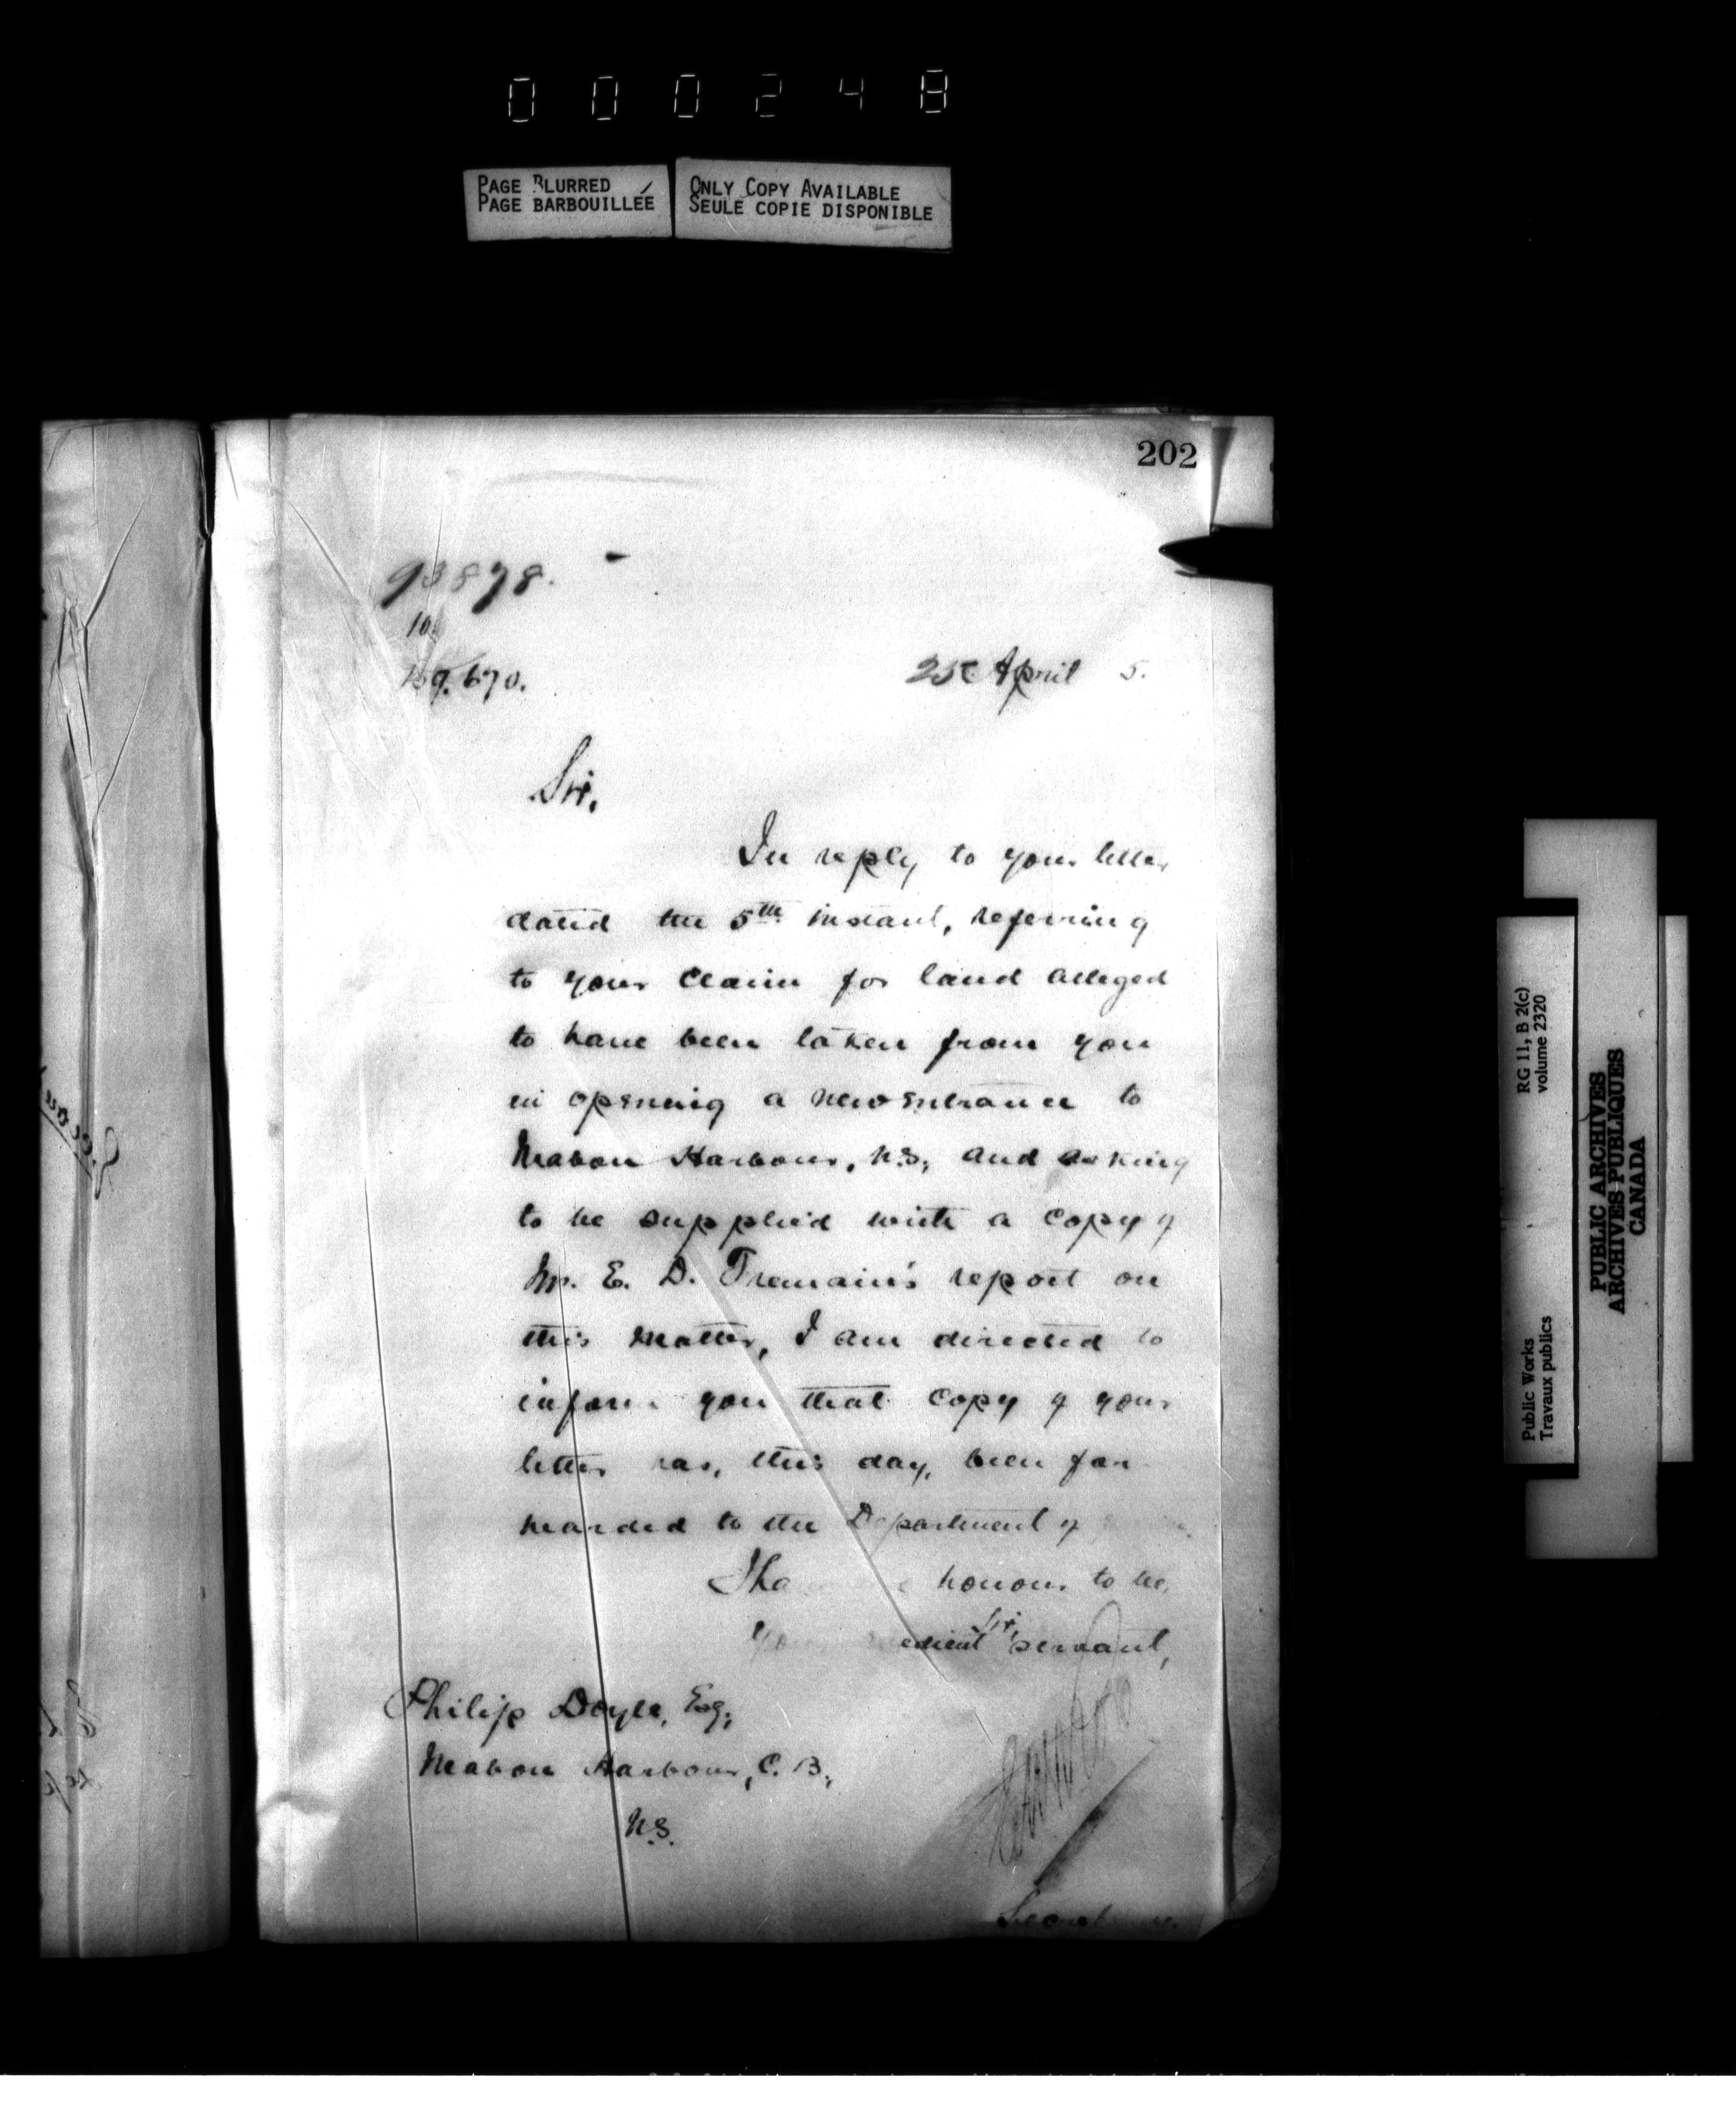 000248
PAGE BLURRED
PAGE BARBOUILLÉE
ONLY COPY AVAILABLE
SEULE COPIE DISPONIBLE
202
93878.
10
159.670.
25 April 5.
Sir,
In reply to your letter
dated the 5th instant, referring
to your claim for land alleged
to have been taken from you
in opening a new entrance to
Mabou Harbour, N.S., and asking
to be supplied with a copy of
Mr. E. D. Tremain's report on
this matter, I am directed to
inform you that copy of your
letter has, this day, been for
warded to the Department of
I have the honour to be,
Sir,
Your obedient servant,
Philip Doyle, Esq.,
Mabou Harbour, C. B.,
N.S.
Secretary.
RG 11, B 2(c)
volume 2320
Public Works
Travaux publics
PUBLIC ARCHIVES
ARCHIVES PUBLIQUES
CANADA